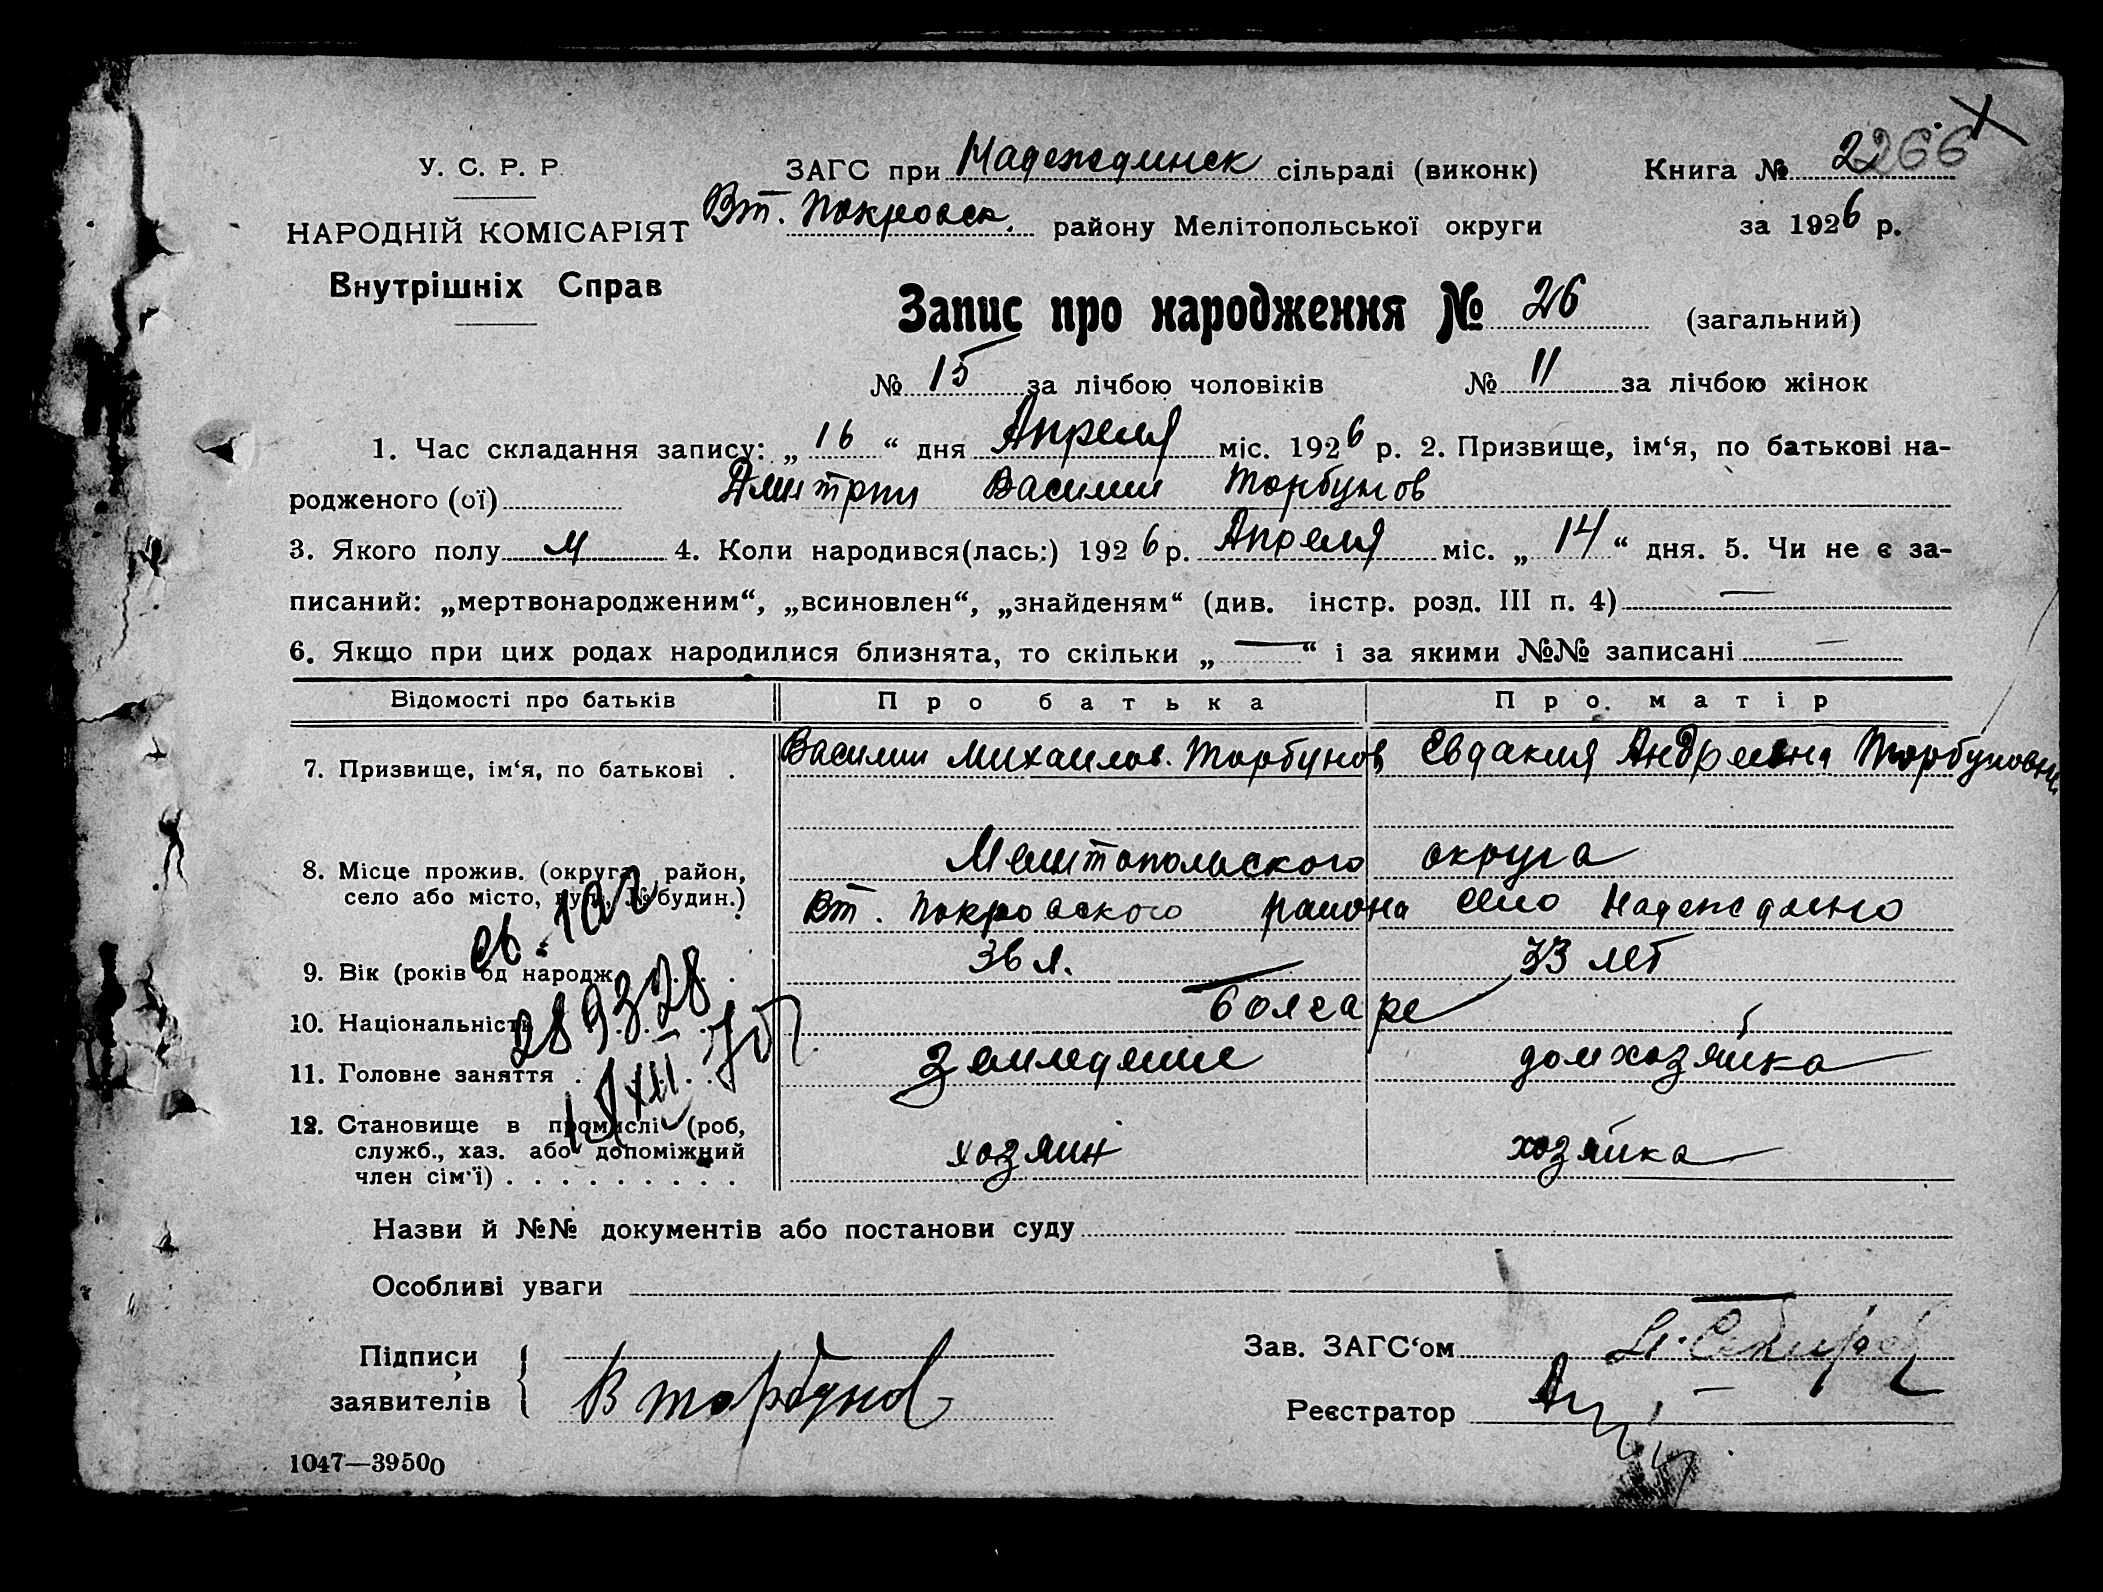 У. С. Р. Р.
НАРОДНІЙ КОМІСАРІЯТ
Внутрішніх Справ
ЗАГС при Надеждинск сільраді (виконк)
Вт. Покровск. району Мелітопольської округи
Книга № 2266
за 1926 р.
Запис про народження № 26 (загальний)
№ 15 за лічбою чоловіків № 11 за лічбою жінок
1. Час складання запису: „16“ дня Апреля міс. 1926 р. 2. Призвище, ім‘я, по батькові на-
родженого (ої) Дмитрии Василии Торбунов
3. Якого полу М 4. Коли народився(лась:) 1926 р. Апреля міс. „14“ дня. 5. Чи не є за-
писаний: „мертвонародженим“, „всиновлен“, „знайденям“ (див. інстр. розд. III п. 4) —
6. Якщо при цих родах народилися близнята, то скільки „—“ і за якими №№ записані —
Відомості про батьків Про батька Про матір
7. Призвище, ім‘я, по батькові . Василии Михаилов. Торбунов Евдакия Андреевна
8. Місце прожив. (округа, район, Мелитопольского округа
село або місто, вул., № будин.) Вт. Покровского раиона село Надеждино
9. Вік (років од народж. 36 л. 33 лет
10. Національність болгаре
11. Головне заняття . земледелие домхозяйка
12. Становище в промислі (роб,
служб., хаз. або допоміжний хозяин хозяйка
член сім‘ї) . . . . . . . . .
Назви й №№ документів або постанови суду
Особливі уваги
Підписи
заявителів В Торбунов
Зав. ЗАГС‘ом
Реєстратор
1047—39500